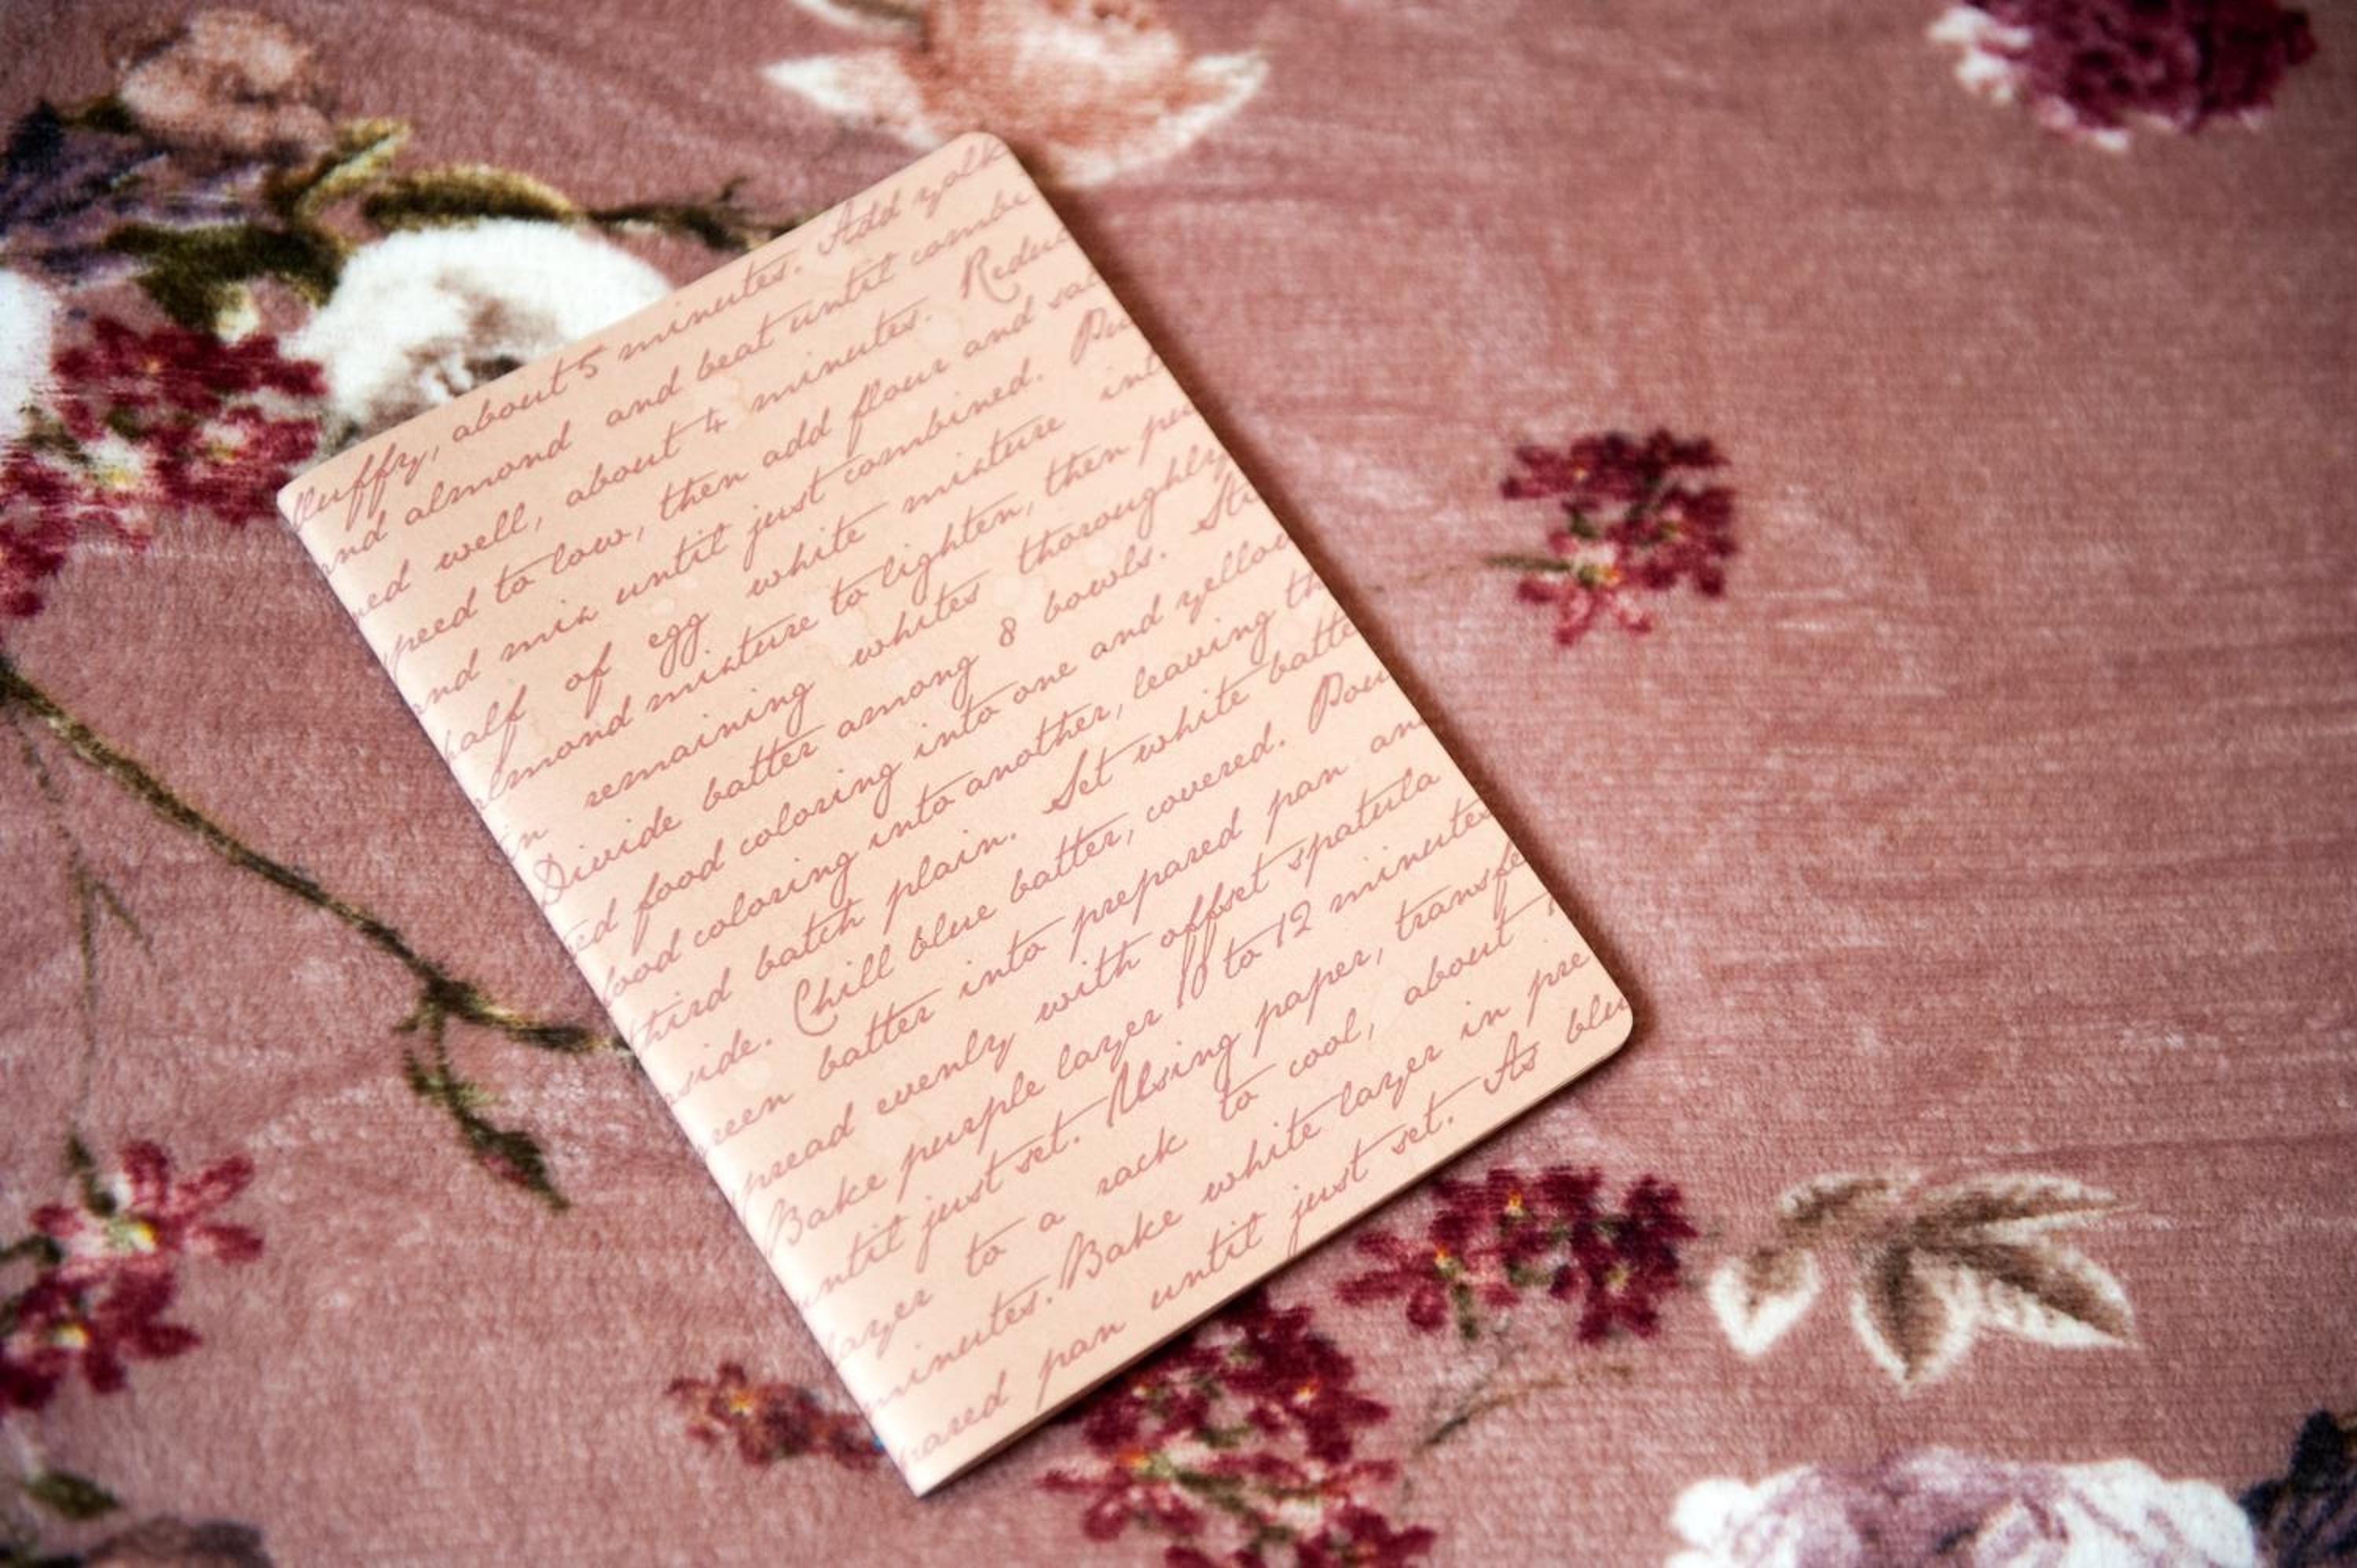 fluffy, about 5 minutes. Add yolk
nd almond and beat until combi
ned well, about 4 minutes. Reduc
peed to low, then add flour and sal
nd mix until just combined. Pu
half of egg white mixture int
almond mixture to lighten, then pu
in remaining whites thoroughly
Divide batter among 8 bowls. Sti
ed food coloring into one and yellow
food coloring into another, leaving th
third batch plain. Set white batte
side. Chill blue batter, covered. Pour
reen batter into prepared pan an
pread evenly with offset spatula
Bake purple layer 10 to 12 minutes
ntil just set. Using paper, transfe
layer to a rack to cool, about
minutes. Bake white layer in pre
pared pan until just set. As blu